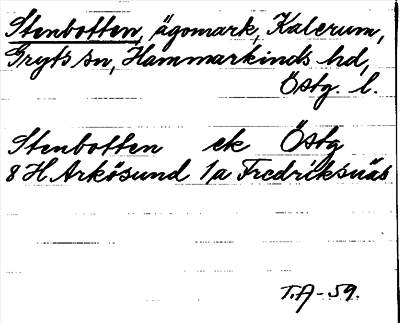 Stenbotten, ägomark, Kalerum,
Gryts sn, Hammarkinds hd,
Östg. l.
Stenbotten ek Östg
8 H Arkösund 1a Fredriksnäs
T.A-59.